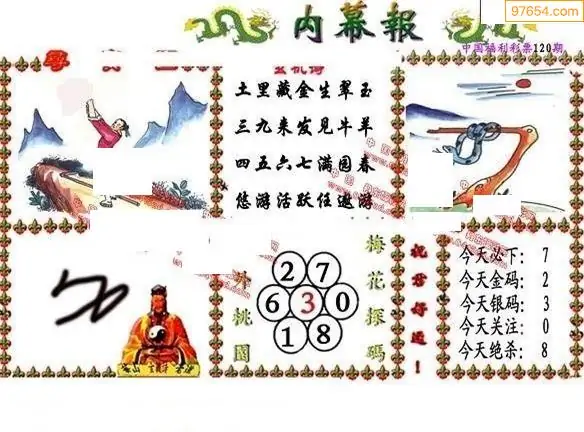 97654.com
内幕報
中国福利彩票120期
土里藏金生翠玉
三九来发见牛羊
四五六七满园春
悠游活跃任遨游
27
630
18
梅花探碼
桃園
祝君好运!
今天必下: 7
今天金码: 2
今天银码: 3
今天关注: 0
今天绝杀: 8